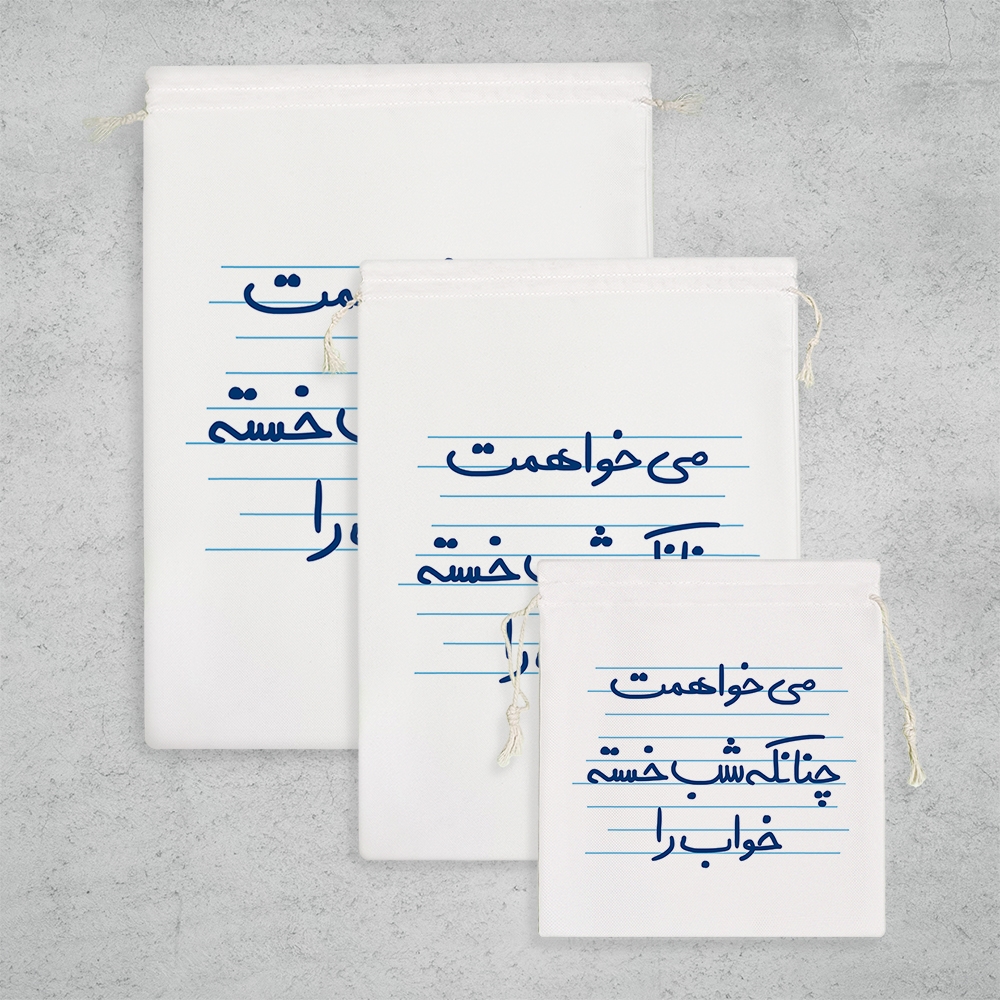 خسته
را
می خواهمت
خسته
می خواهمت
چنانکه شب خسته
خواب را